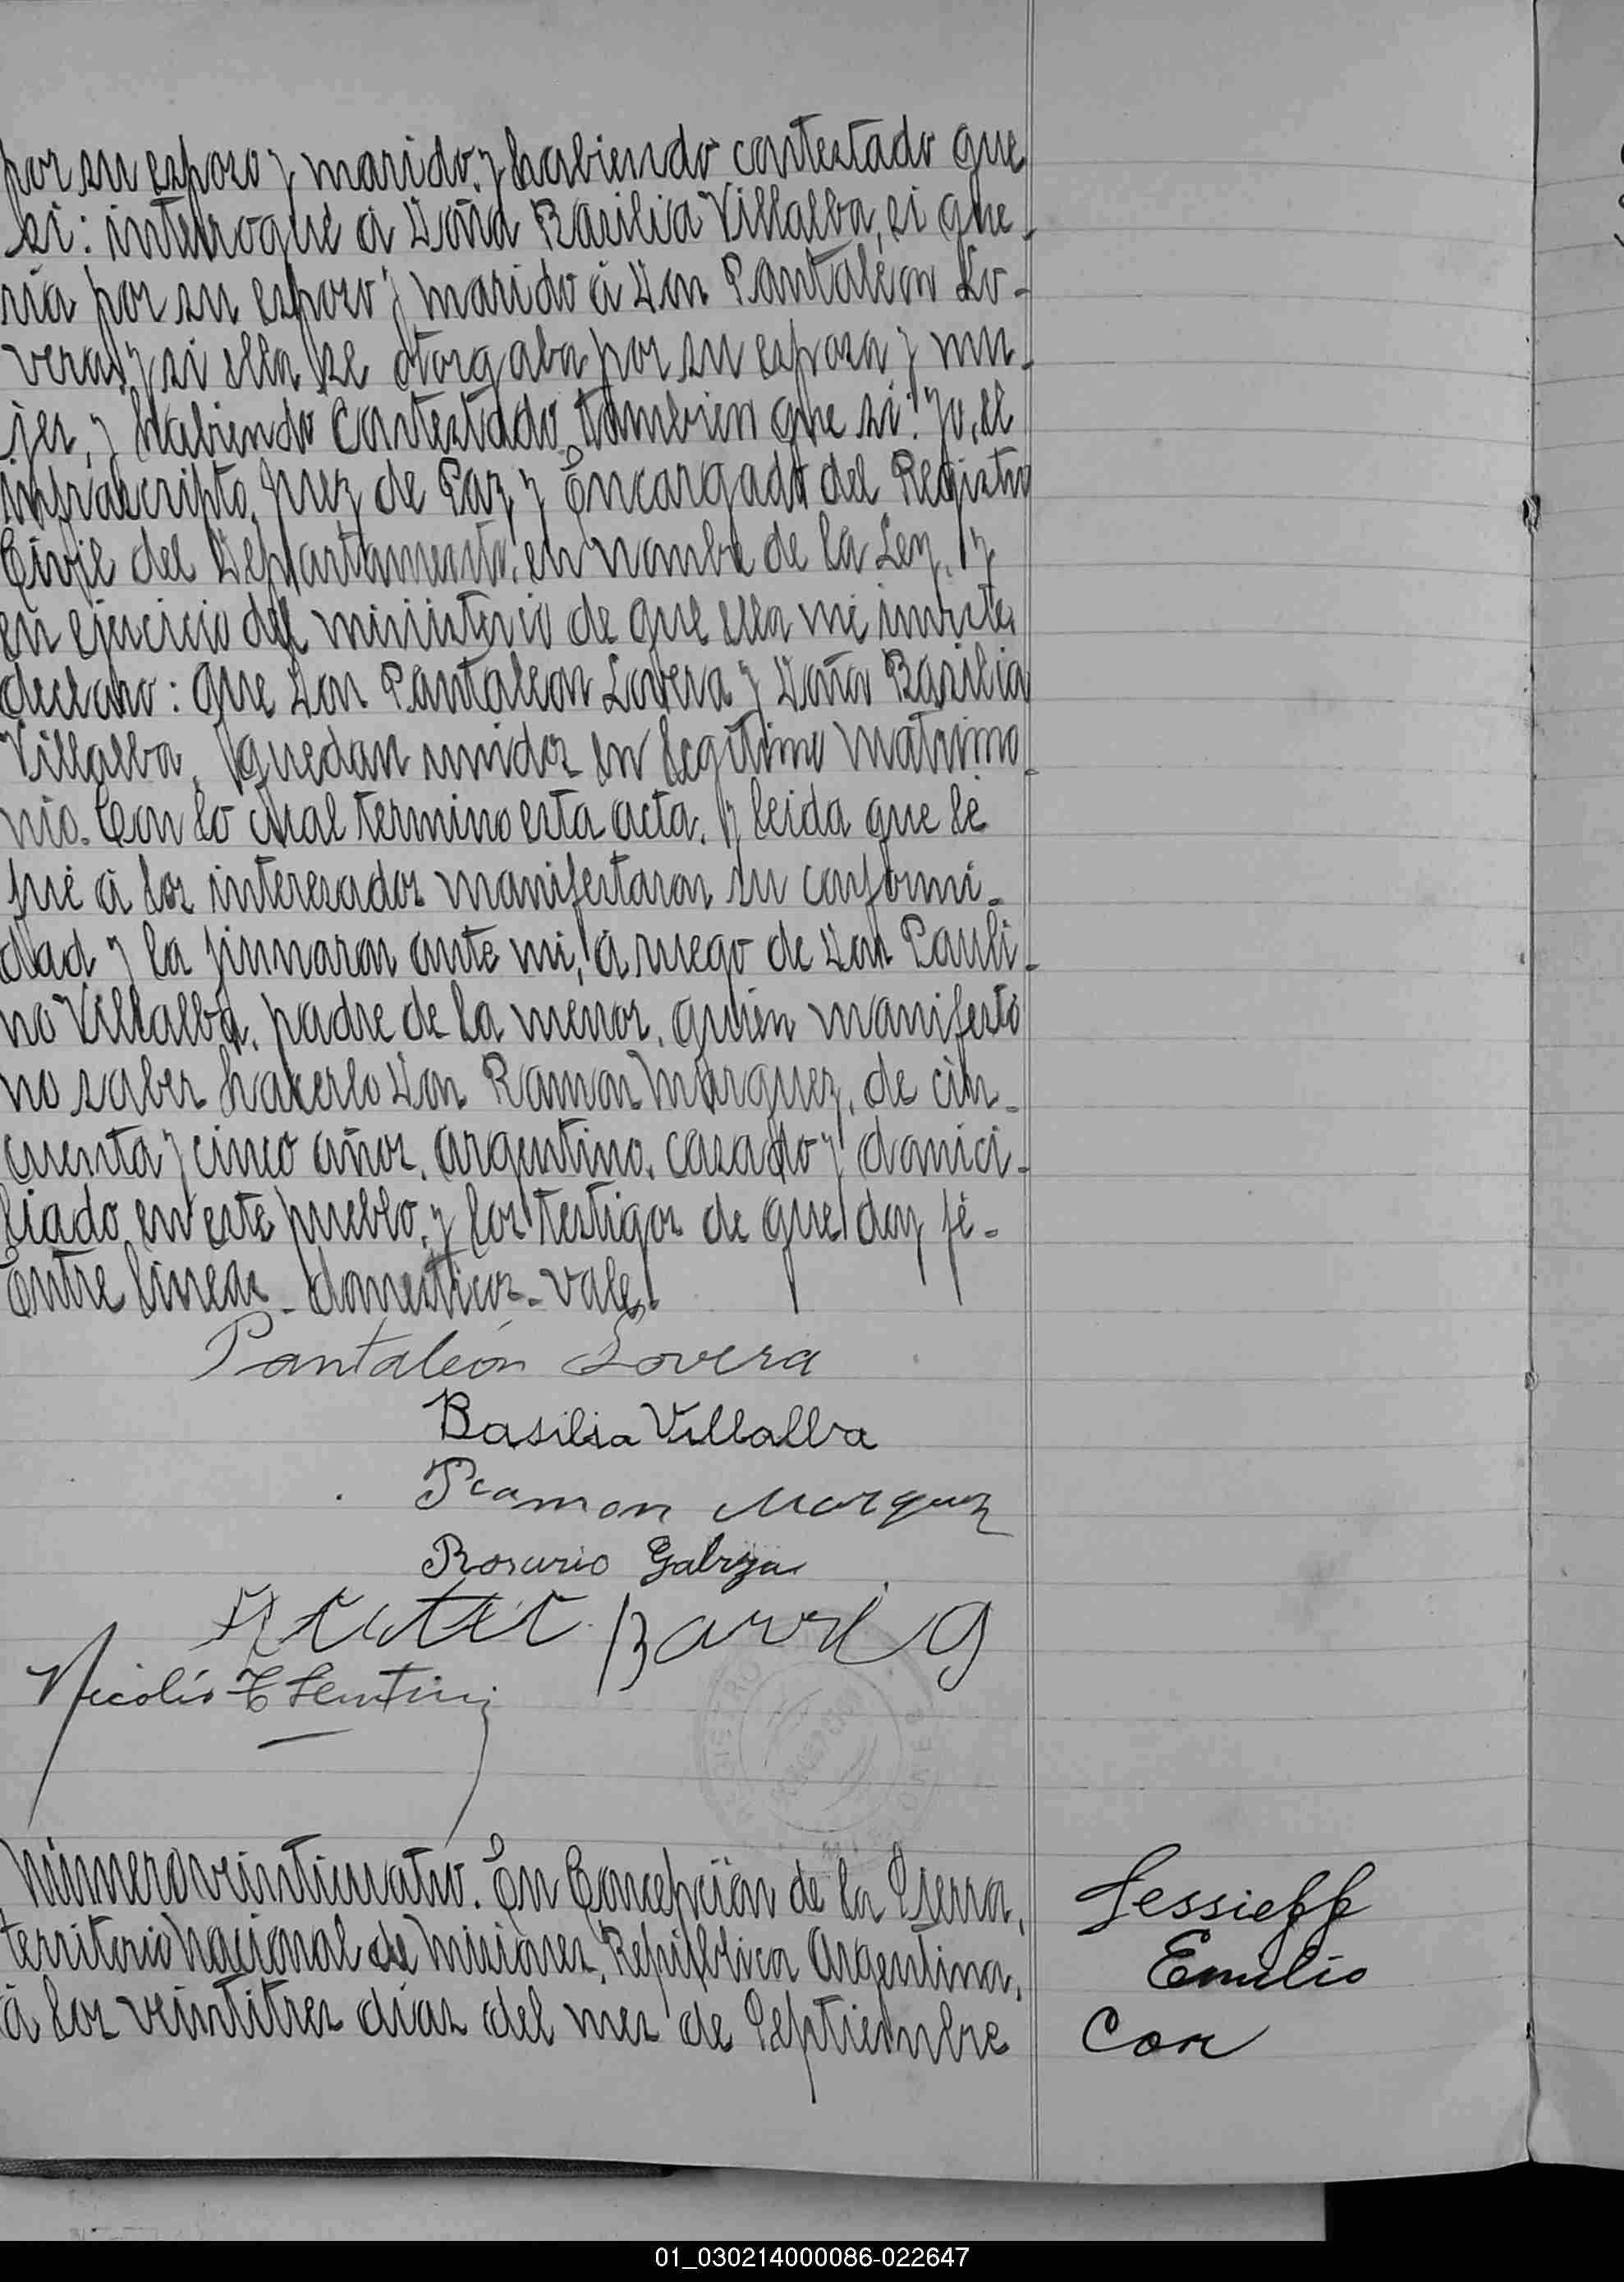 por su esposo y marido, y habiendo contestado que
si: interrogué á Doña Basilia Villalba, si que-
ria por su esposo y marido á Don Pantaleón Lo-
vera, y si ella se otorgaba por su esposa y mu-
jer, y habiendo contestado tambien que si: yo, el
infrascripto, Juez de Paz y Encargado del Registro
Civil del Departamento, en nombre de la Ley, y
en ejercicio del ministerio de que ella me inviste,
declaro: que Don Pantaleon Lovera y Doña Basilia
Villalba, quedan unidos en legitimo matrimo-
nio. Con lo cual termino esta acta, y leida que le
fué á los interesados manifestaron su conformi-
dad y la firmaron ante mi, á ruego de Don Pauli-
no Villalba, padre de la menor, quien manifestó
no saber hacerlo Don Ramon Marquez, de cin-
cuenta y cinco años, argentino, casado y domici-
liado en este pueblo, y los testigos de que doy fé-
Entre lineas - domesticos - vale.
Pantaleón Lovera
Basilia Villalba
Ramon Marquez
Rosario
Nicolás
REGISTRO
Número veinticuatro. En Concepción de la Sierra,
territorio Nacional de Misiones, República Argentina,
á los veintitres dias del mes de Septiembre
Lessieff
Emilio
Con
01_030214000086-022647